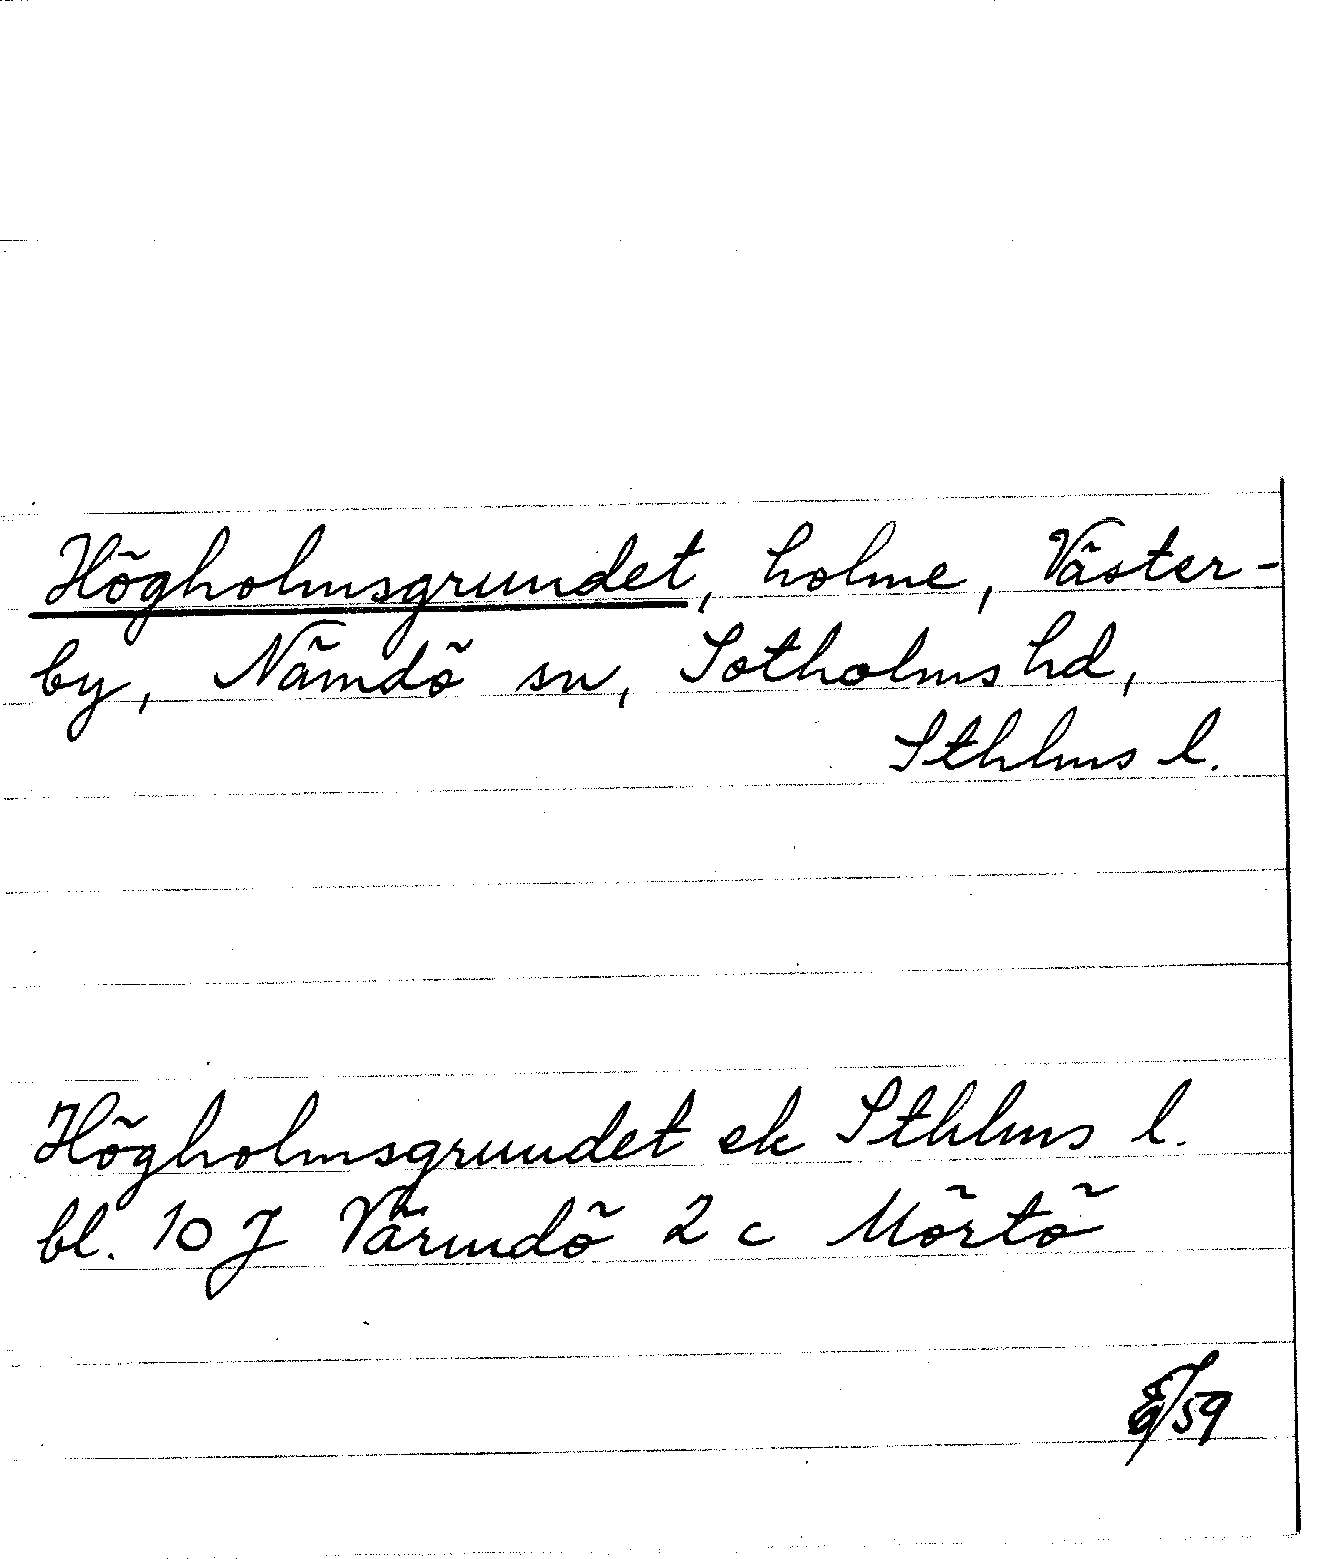 Högholmsgrundet, holme, Väster-
by, Nämdö sn, Sotholms hd,
Sthlms l.
Högholmsgrundet ek Sthlms l.
bl. 10 J Värmdö 2 c Mörtö
/59